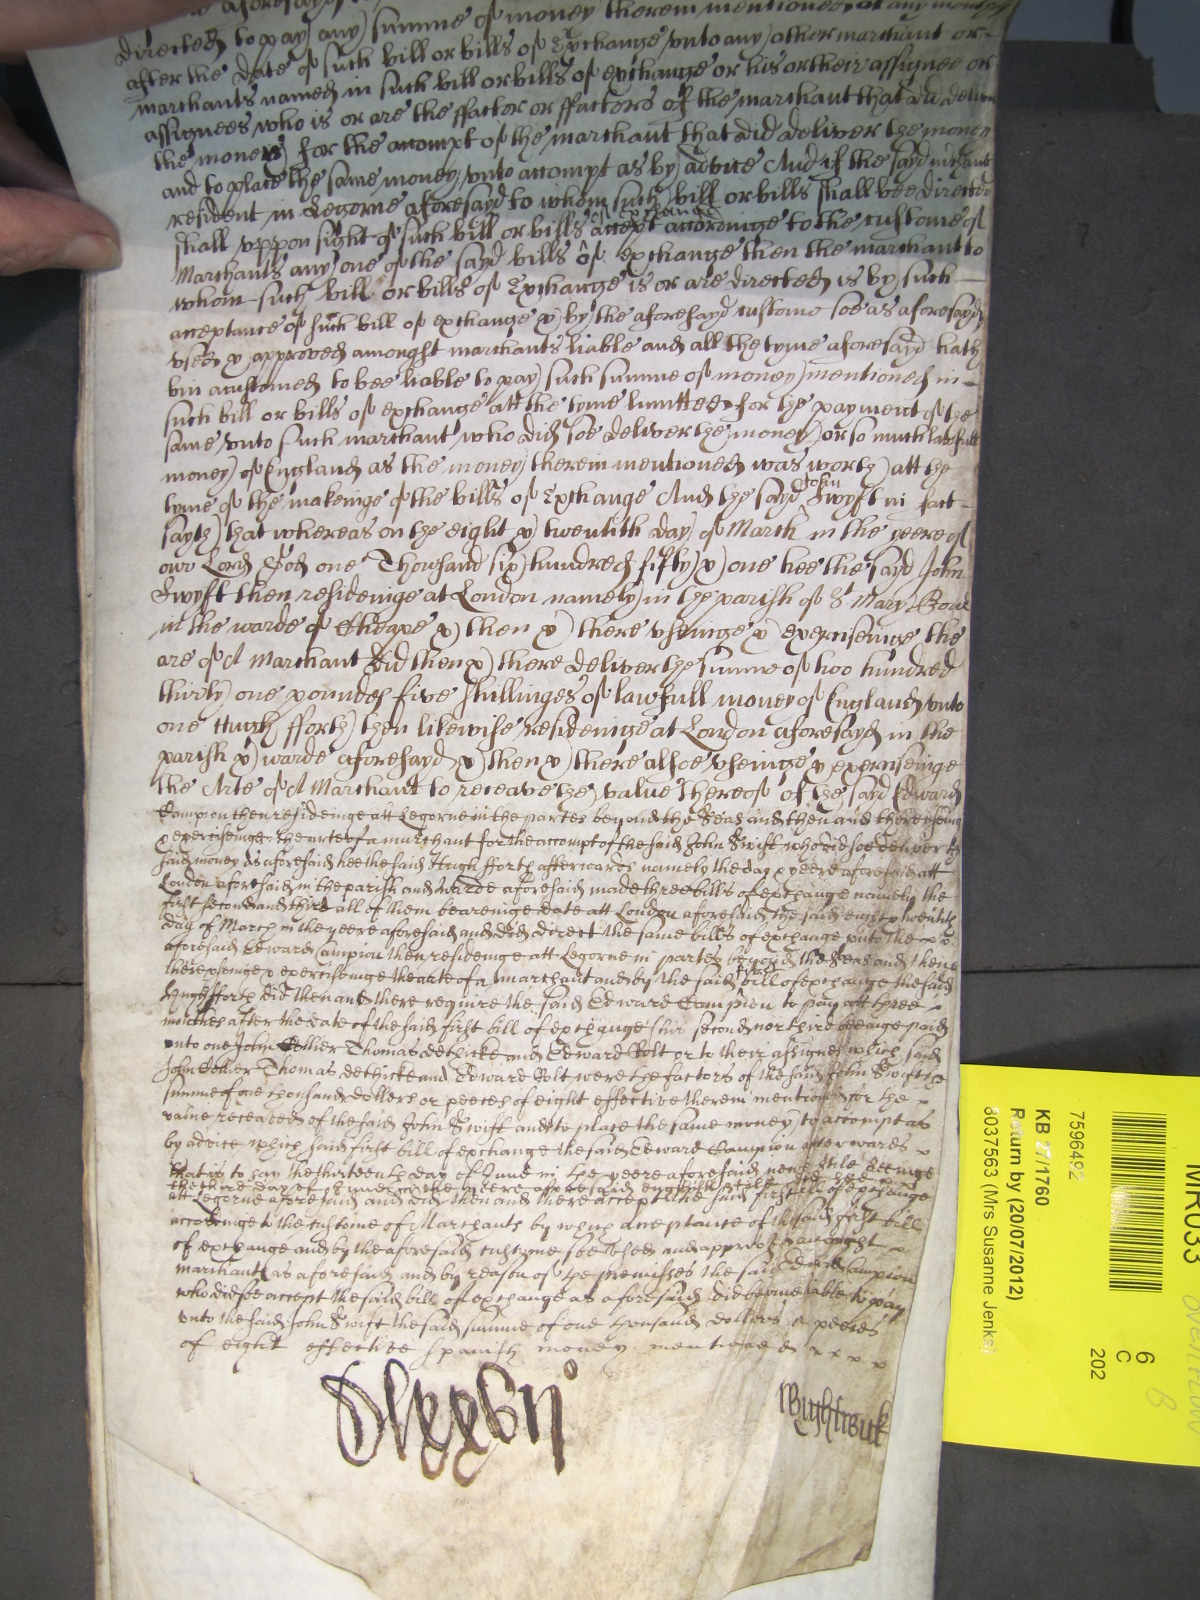 directed to pay any summe of money therein mentioned at any
after the date of such bill or bills of Exchange vnto any other marchant or
marchants named in such bill or bills of exchange or his or their assignee or
assignees who is or are the ffactor or ffactors of the marchant that did deliver
the money for the accompt of the marchant that did deliver the money
and to place the same money vnto accompt as by advice And if the sayd marchant
resident in Legorne aforesayd to whom such bill or bills shall bee directed
shall vppon sight of such bill or bills of exchange accept accordinge to the custome of
Marchants any one of the sayd bills of exchange then the marchant to
whom such bill or bills of Exchange is or are directed is by such
acceptance of such bill of exchange & by the aforesayd custome soe as aforesayd
vsed & approved amonght marchants liable and all the tyme aforesayd hath
bin accustomed to bee liable to pay such summe of money mentioned in
such bill or bills of exchange att the tyme limitted for the payment of the
same vnto such marchant who did soe deliver the money or so much lawfull
money of England as the money therein mentioned was worth att the
tyme of the makeinge of the bills of Exchange And the sayd John Swyft in fact
sayth that whereas on the eight & twentith day of March in the yeere of
our Lord God one Thowsand six hundred fifty & one hee the sayd John
Swyft then resideinge at London namely in the parish of St Mary Bow
in the warde of Cheape & then & there vseinge & exerciseinge the
are of A Marchant did then & there deliver the summe of two hundred
thirty one poundes five shillinges of lawfull money of England vnto
one Hugh fforth then likewise resideinge at London aforesayd in the
parish & warde aforesayd & then & there alsoe vseinge & exerciseinge
the Arte of A Marchant to receave the value thereof of the sayd Edward
Campion then resideinge att Legorne in the partes beyond the Seas and then and there vseing
& exerciseinge the arte of a marchant for the accompt of the said John Swift who did soe deliver the
said money as aforesaid hee the said Hugh fforth afterwards namely the day & yeere aforesaid att
London aforesaid in the parish and warde aforesaid made three bills of exchange namely the
first second and third all of them beareinge date att London aforesaid the said eight & twentith
day of March in the yeere aforesaid and did direct the same bills of exchange vnto the x x
aforesaid Edward Campion then resideinge att Legorne in partes beyond the Seas and then &
there vseinge & exerciseinge the arte of a marchant and by the said first bill of exchange the said
Hugh fforth did then and there require the said Edward Campion to pay att three
monthes after the date of the said first bill of exchange his second nor third beeinge paid
vnto one John Collier Thomas dethicke and Edward Rolt or to their assignes which said
John Collier Thomas dethicke and Edward Rolt were the factors of the said John Swift the
summe of one thousand dollers or peeces of eight effective therein mentioned for the x
value receaved of the said John Swift and to place the same money to accompt as
by advice which said first bill of exchange the said Edward Campion afterwards x
that is to say the thirteenth day of June in the yeere aforesaid newe stile beeinge
the third day of June in the yeere aforesaid English stile
att Legorne aforesaid and did then and there accept the said first bill of exchange
accordinge to the custome of Marchants by which acceptance of the said first bill
of exchange and by the aforesaid custome soe vsed and approved amonght
marchants as aforesaid and by reason of the premisses the said Edward Campion
who did soe accept the said bill of exchange as aforesaid did become liable to pay
vnto the said John Swift the said summe of one thousand dollers or peeces
of eight effective spanish money mentioned x x x x
Wightwick
759649
KB 27/1760
Return by (20/07/2012)
8037563 (Mrs Susanne Jenks)
MR033
6
C
202
B